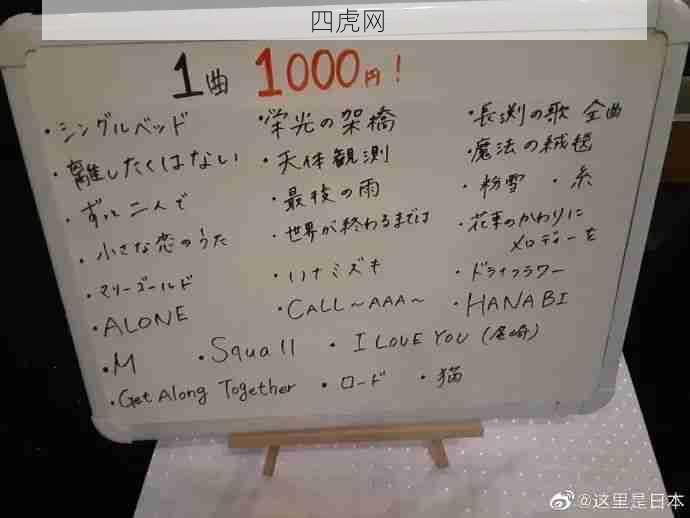 四虎网
1曲 1000円！
・シングルベッド
・離したくはない
・ずっと二人で
・小さな恋のうた
・マリーゴールド
・ALONE
・M
・Get Along Together
・栄光の架橋
・天体観測
・最後の雨
・世界が終わるまでは
・ハナミズキ
・CALL～AAA～
・Squall
・I LOVE YOU (尾崎)
・ロード
・猫
・長渕の歌 全曲
・魔法の絨毯
・粉雪 ・糸
・花束のかわりに
メロディーを
・ドライフラワー
・HANABI
@这里是日本